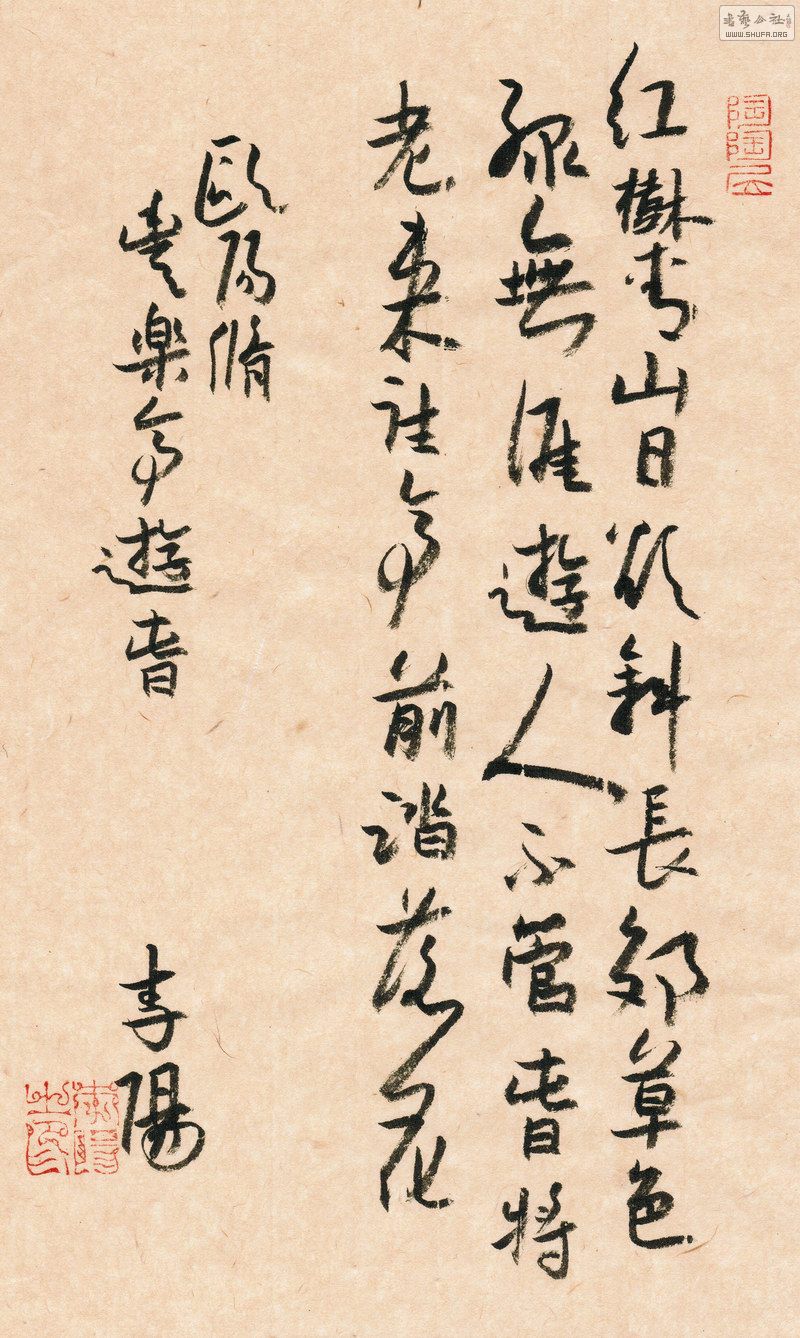 書藝公社
WWW.SHUFA.ORG
紅樹青山日欲斜長郊草色
綠無涯遊人不管春將
老來往亭前踏落花
歐陽脩
豐楽亭遊春 陽